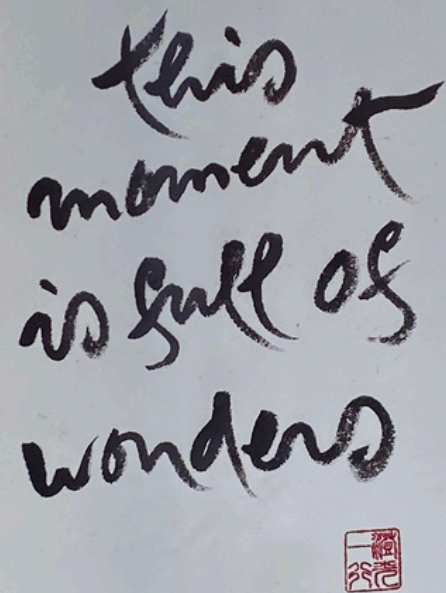 this
moment
is full of
wonders